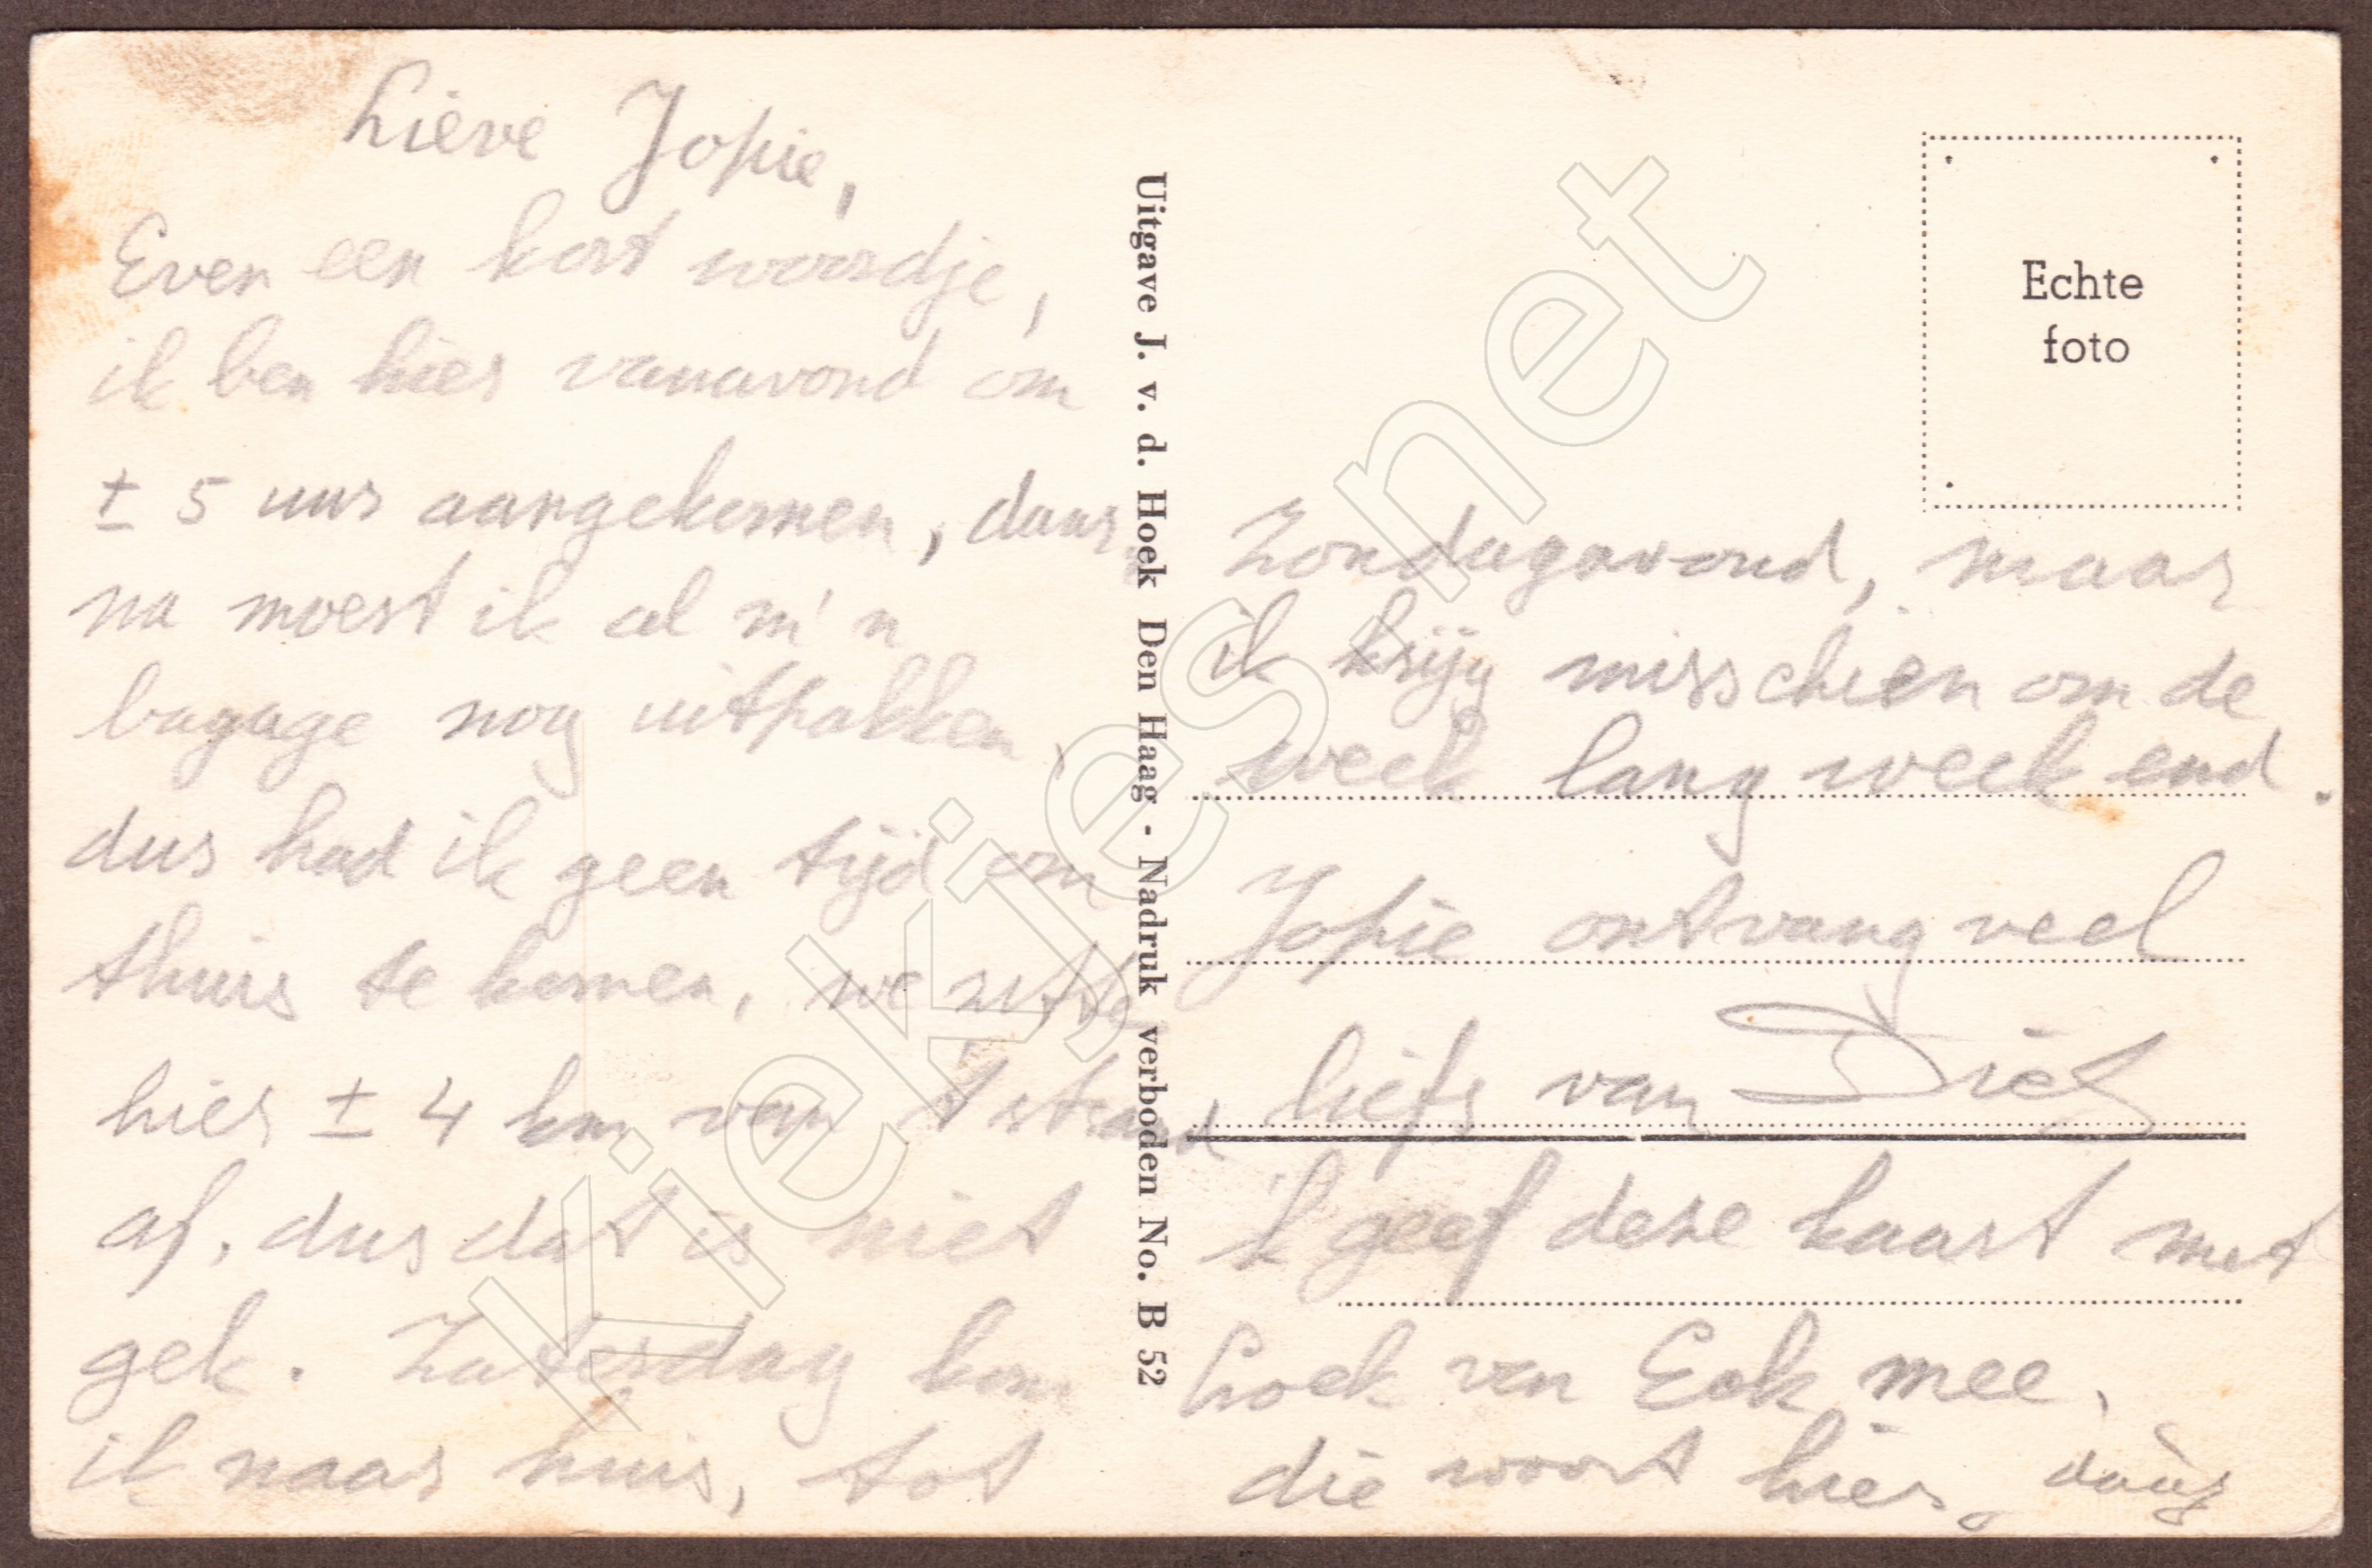 Lieve Jopie,
Even een kort woordje,
ik ben hier vanavond om
± 5 uur aangekomen, daar
na moest ik al m'n
bagage nog uitpakken,
dus had ik geen tijd om
thuis te komen, we zitte
hier ± 4 km van 't strand
af, dus dat is niet
gek. Zaterdag kom
ik naar huis, tot
Uitgave J. v. d. Hoek Den Haag - Nadruk verboden No. B 52
Echte
foto
Zondagavond, maar
ik krijg misschien om de
week lang week end.
Jopie ontvang veel
liefs van Diet
'k geef deze kaart met
Loek van Eck mee,
die woont hier, daàg
kiekjes.net